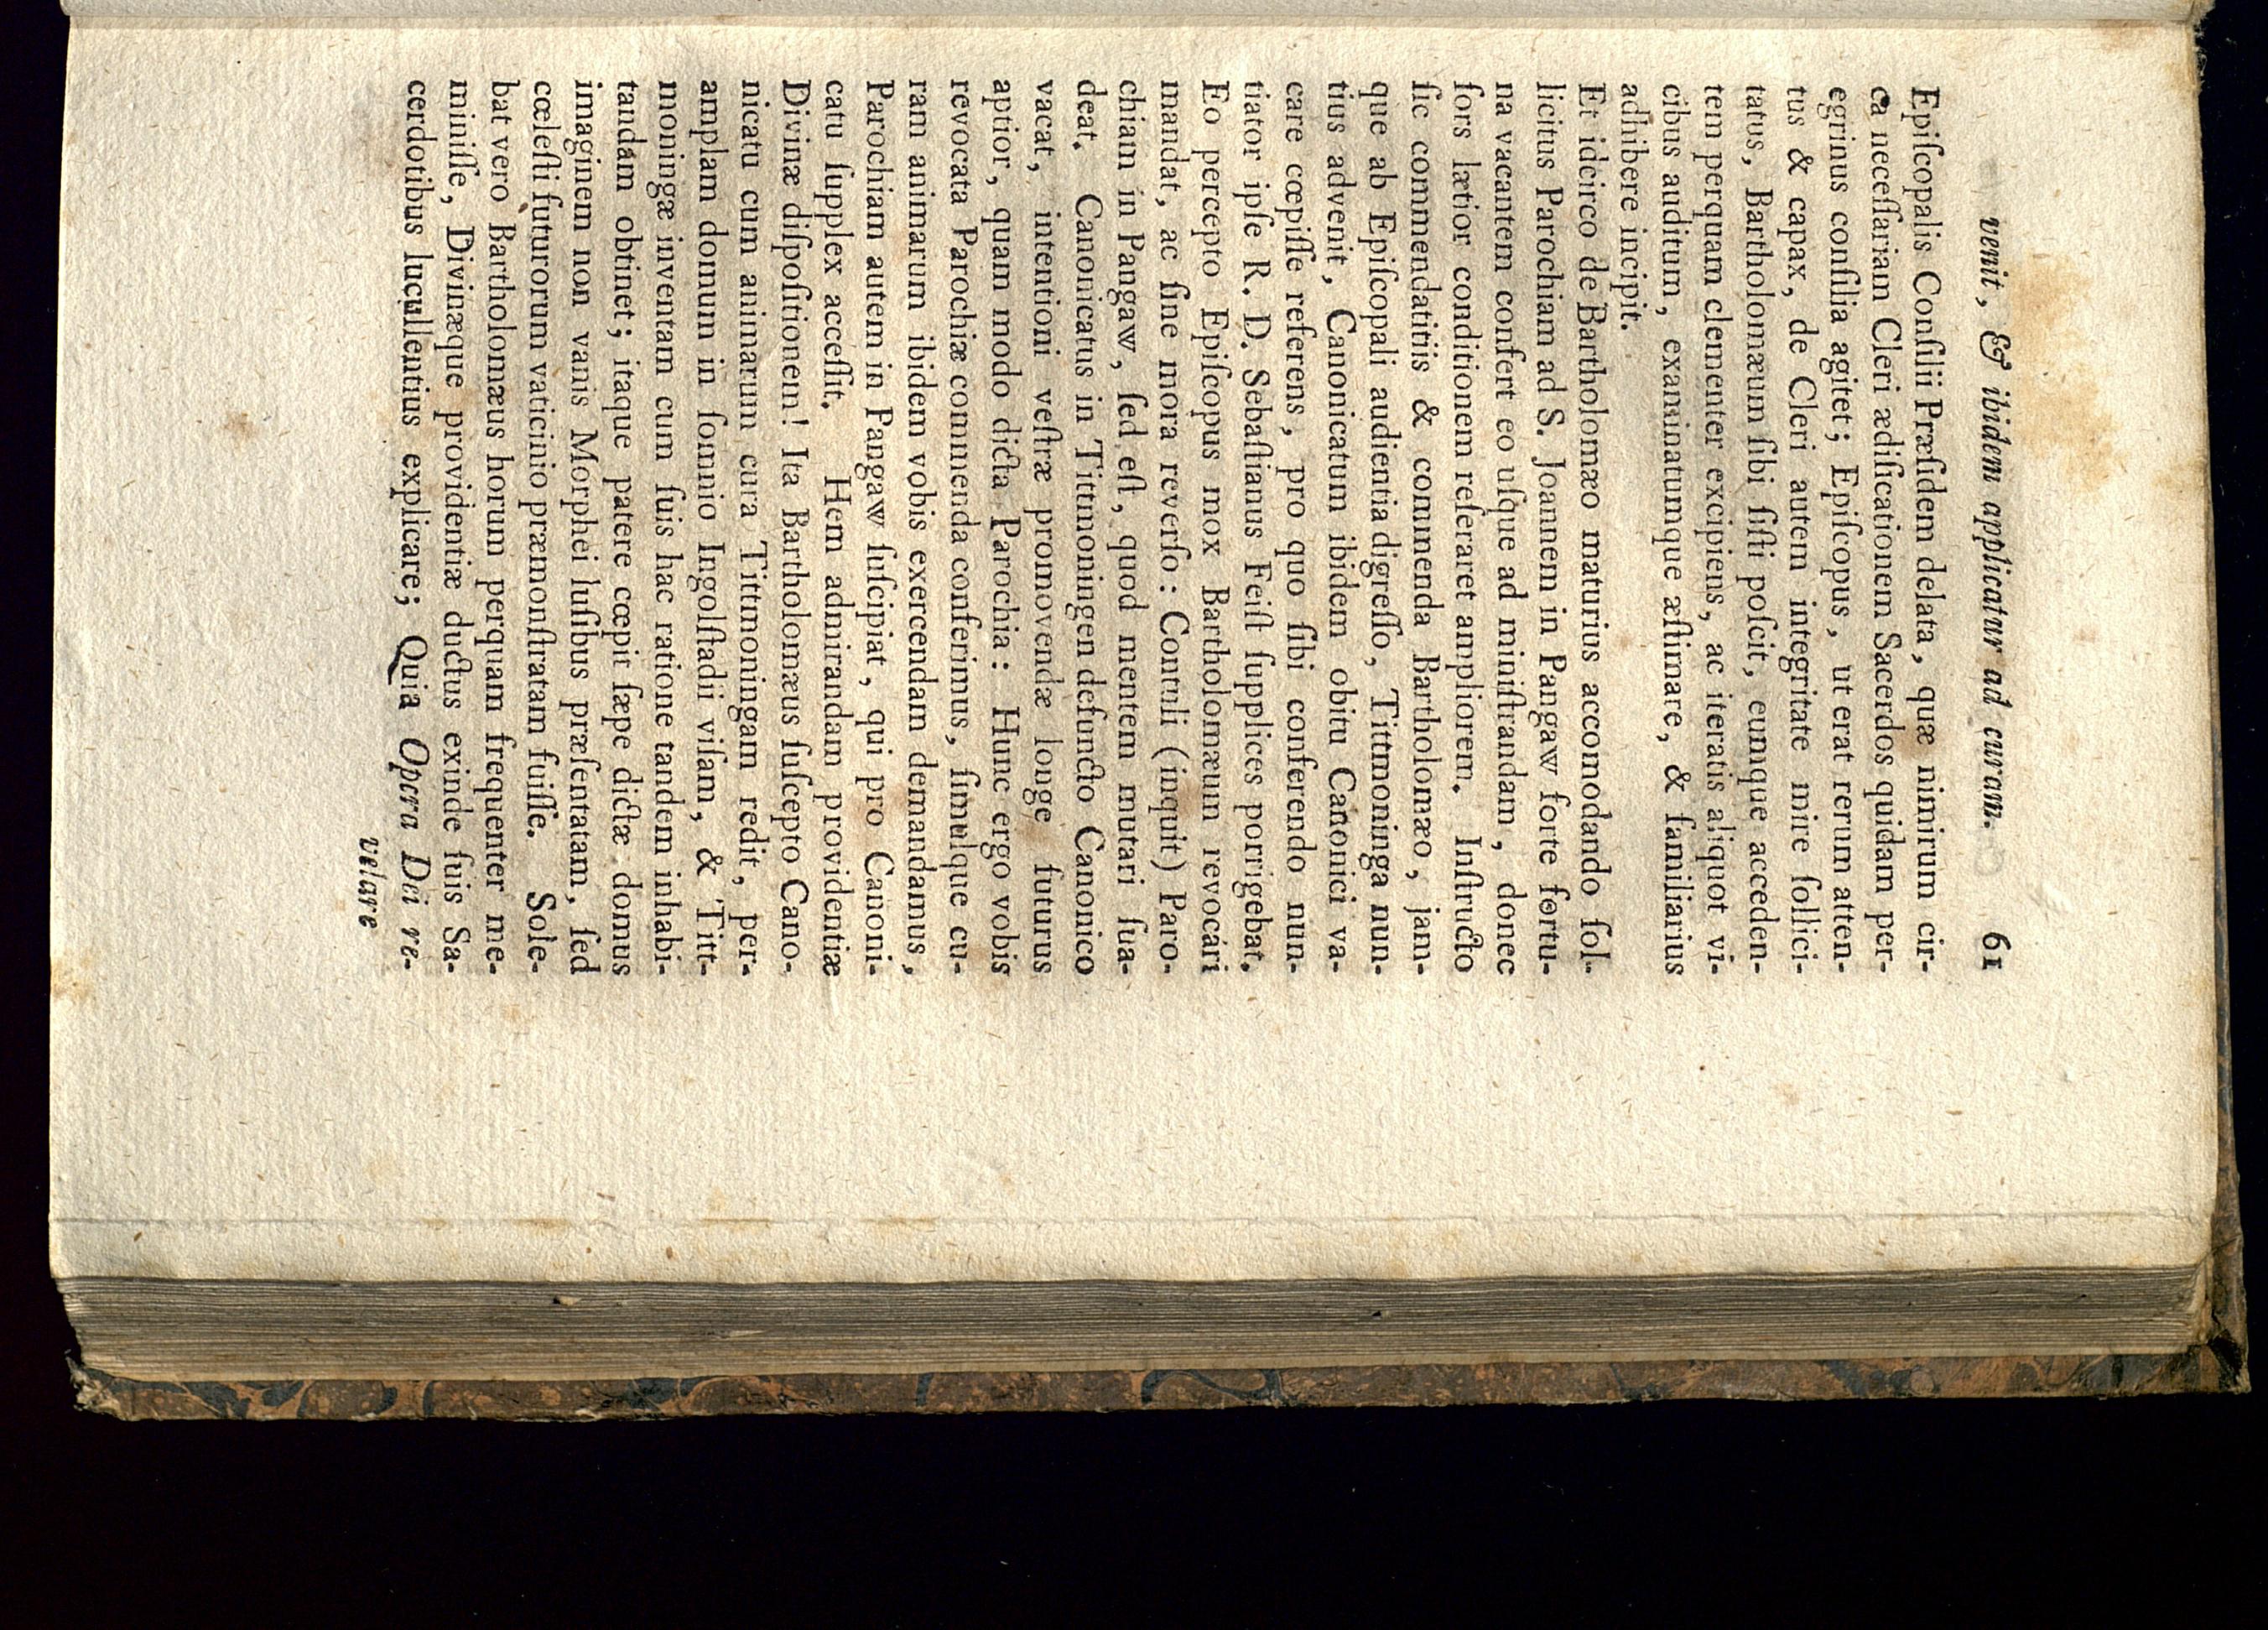 venit, & ibidem applicatur ad curam. 61
Epiſcopalis Conſilii Præſidem delata, quæ nimirum cir-
ca neceſſariam Cleri ædificationem Sacerdos quidam per-
egrinus conſilia agitet; Epiſcopus, ut erat rerum atten-
tus & capax, de Cleri autem integritate mire ſollici-
tatus, Bartholomæum ſibi ſiſti poſcit, eumque acceden-
tem perquam clementer excipiens, ac iteratis aliquot vi-
cibus auditum, examinatumque æſtimare, & familiarius
adhibere incipit.
Et idcirco de Bartholomæo maturius accomodando ſol-
licitus Parochiam ad S. Joannem in Pangaw forte fortu-
na vacantem confert eo uſque ad miniſtrandam, donec
ſors lætior conditionem reſeraret ampliorem. Inſtructo
ſic commendatitiis & commenda Bartholomæo, jam-
que ab Epiſcopali audientia digreſſo, Tittmoninga nun-
tius advenit, Canonicatum ibidem obitu Canonici va-
care cœpiſſe referens, pro quo ſibi conferendo nun-
tiator ipſe R. D. Sebaſtianus Feiſt ſupplices porrigebat.
Eo percepto Epiſcopus mox Bartholomæum revocari
mandat, ac ſine mora reverſo: Contuli (inquit) Paro-
chiam in Pangaw, ſed eſt, quod mentem mutari ſua-
deat. Canonicatus in Tittmoningen defuncto Canonico
vacat, intentioni veſtræ promovendæ longe futurus
aptior, quam modo dicta Parochia: Hunc ergo vobis
revocata Parochiæ commenda conferimus, ſimulque cu-
ram animarum ibidem vobis exercendam demandamus,
Parochiam autem in Pangaw ſuſcipiat, qui pro Canoni-
catu ſupplex acceſſit. Hem admirandam providentiæ
Divinæ diſpoſitionem! Ita Bartholomæus ſuſcepto Cano-
nicatu cum animarum cura Tittmoningam redit, per-
amplam domum in ſomnio Ingolſtadii viſam, & Titt-
moningæ inventam cum ſuis hac ratione tandem inhabi-
tandam obtinet; itaque patere cœpit ſæpe dictæ domus
imaginem non vanis Morphei luſibus præſentatam, ſed
cœleſti futurorum vaticinio præmonſtratam fuiſſe. Sole-
bat vero Bartholomæus horum perquam frequenter me-
miniſſe, Divinæque providentiæ ductus exinde ſuis Sa-
cerdotibus luculentius explicare; Quia Opera Dei re-
velare